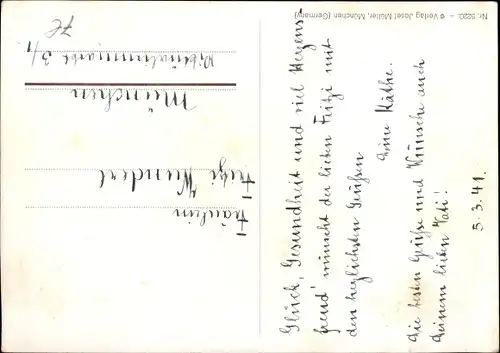 Nr. 5220. – © Verlag Josef Müller, München (Germany)
Glück, Gesundheit und viel Herzens-
freud' wünscht der lieben Fritzi mit
den herzlichsten Grüßen
Eure Käthe.
Die besten Grüße und Wünsche auch
Deinem lieben Vati!
5.3.41.
Fräulein
Fritzi Wundert
München
Viktualienmarkt 3/1